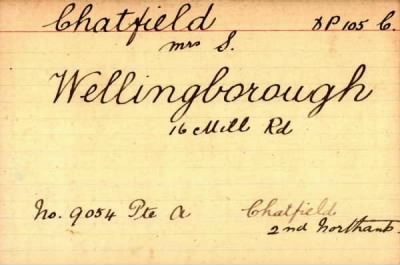 Chatfield DP 105 C.
Mrs S.
Wellingborough
16 Mill Rd
No. 9054 Pte A Chatfield
2nd Northants.